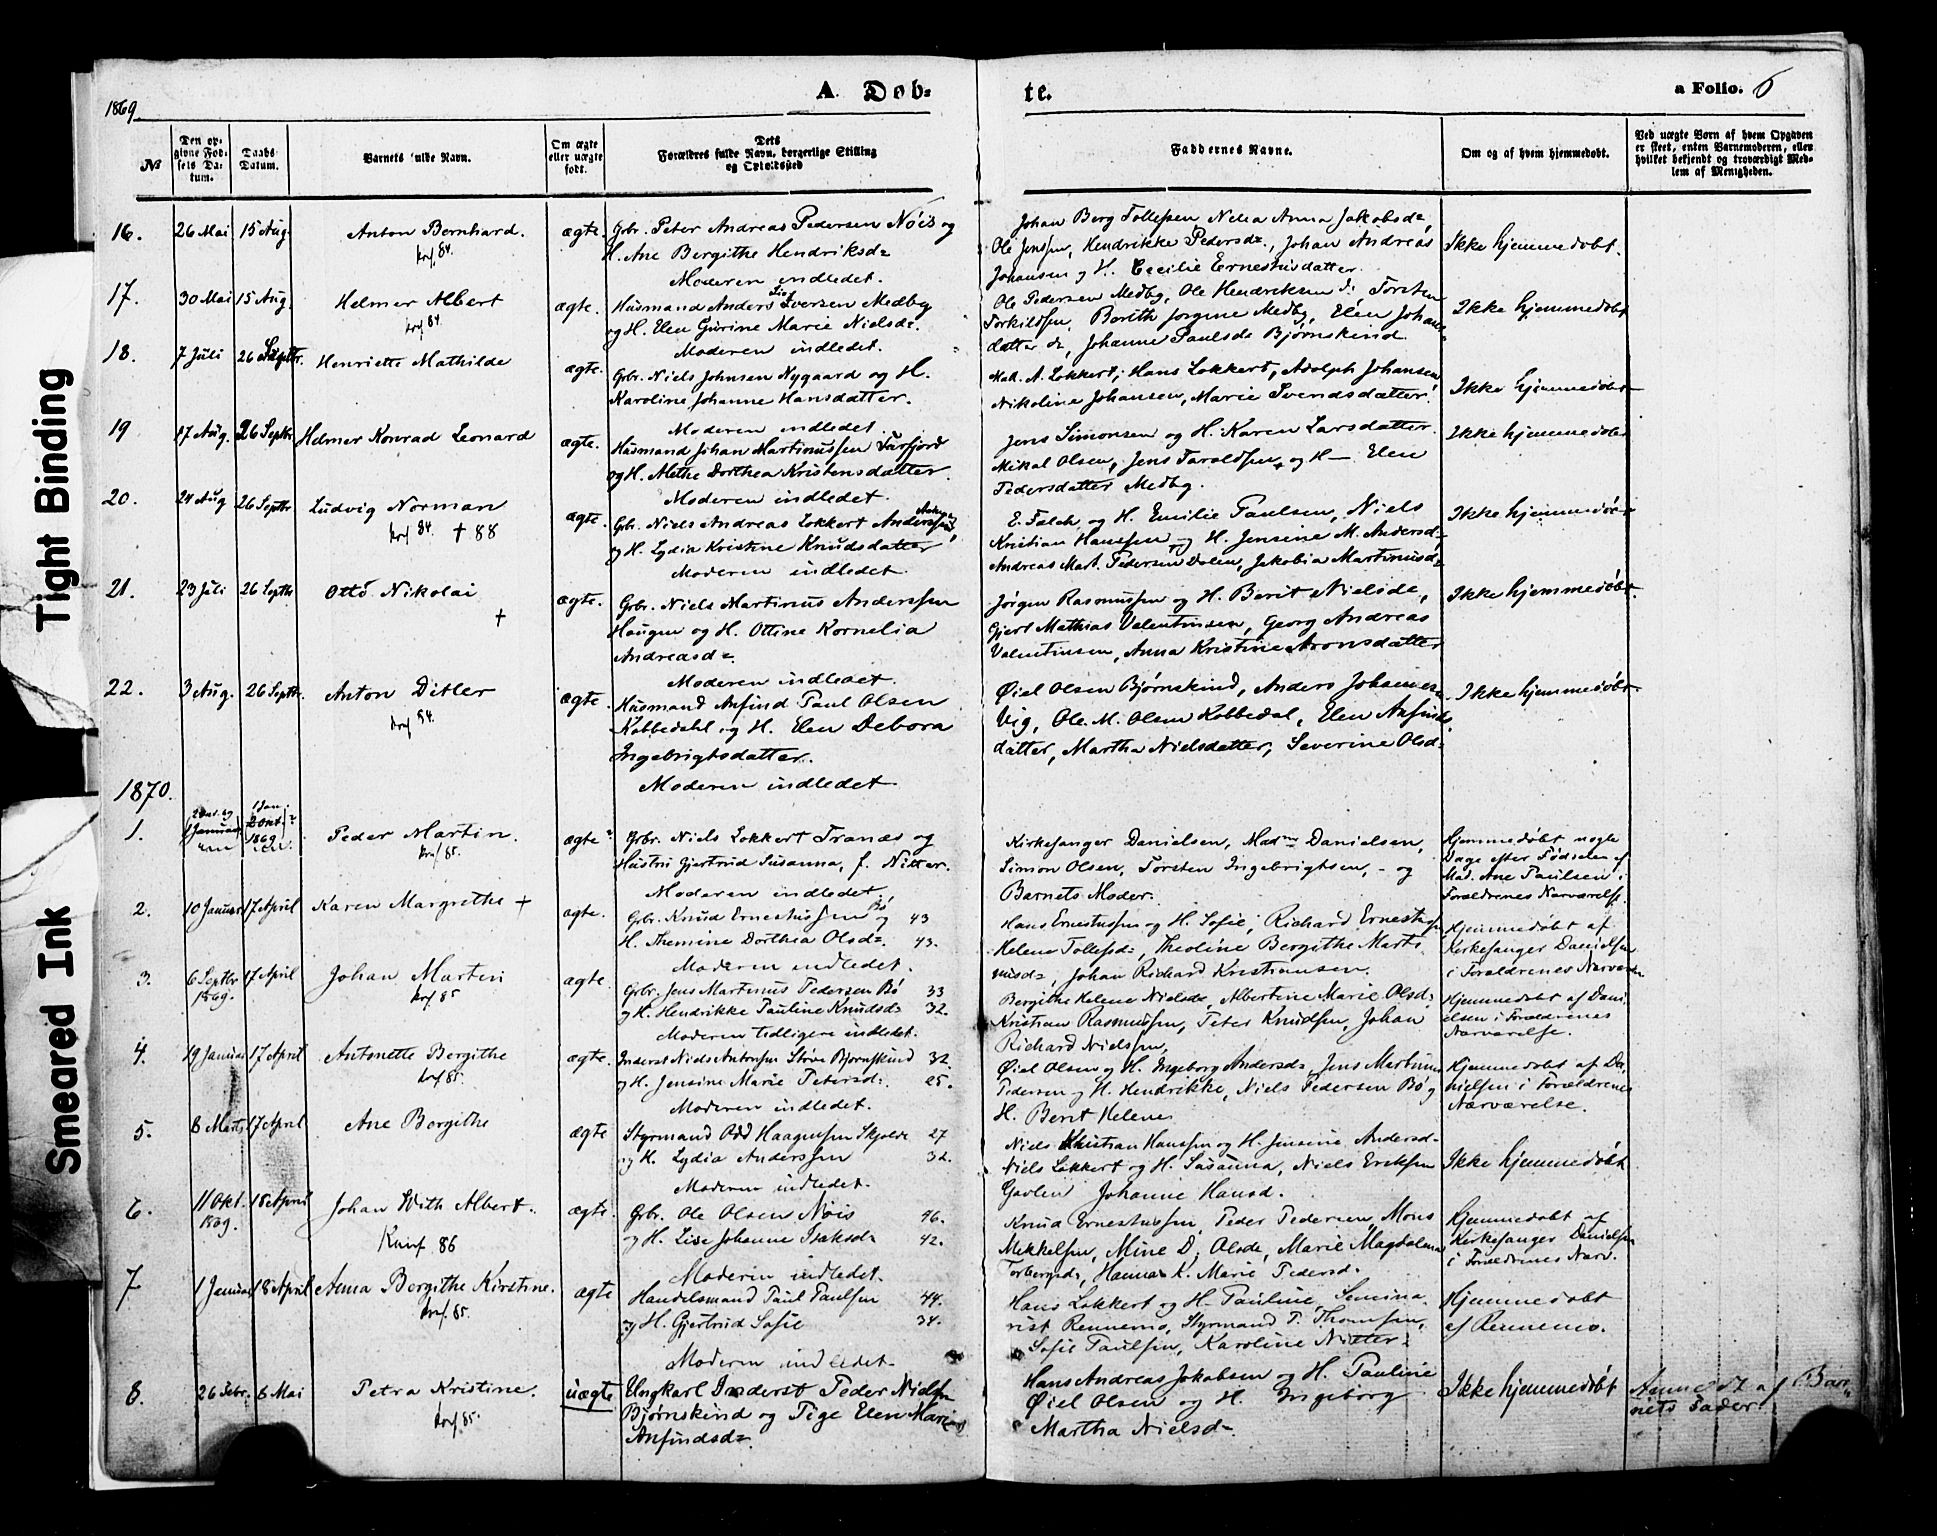 Tight Binding
Smeared Ink
1869
A Døb=
te.
a Folio. 6
№
Den op-
givne Fød-
sels Da-
tum.
Daabs
Datum.
Barnets fulde Navn.
Om ægte
eller uægte
født.
Dets
Forældres fulde Navn, borgerlige Stilling
og Opholdssted
Faddernes Navne.
Om og af hvem hjemmedøbt.
Ved uægte Børn af hvem Opgaven
er skeet, enten Barnemoderen, eller
hvilket bekjendt og troværdigt Med-
lem af Menigheden.
16. 26 Mai 15 Aug. Anton Bernhard. ægte. Gbr. Peter Andreas Pedersen Nöis og
konf. 84. H. Ane Bergithe Hendriksd=
Moderen indledet.
Johan Berg Tollefsen, Anna Jakobsd=,
Ole Jenssen, Hendrikke Pedersd=, Johan Andreas
Johansen og H. Cecilie Ernestusdatter.
Ikke hjemmedøbt.
17. 30 Mai 15 Aug. Helmer Albert ægte. Husmand Anders Iversen Medby
konf 84. og H. Elen Gurine Marie Nielsd=.
Moderen indledet.
Ole Pedersen Medby, Ole Hendriksen d: Torsten
Torkildsen, Berith Jørgine Medby, Elen Johans
datter d=, Johanne Paulsd= Bjørnskind
Ikke hjemmedøbt
18. 7 Juli 26 Septbr. Henriette Mathilde ægte. Gbr. Niels Johnsen Nygaard og H.
Karoline Johanne Hansdatter.
Moderen indledet.
A. Lokkert, Hans Lokkert, Adolph Johansen,
Nikoline Johansen, Marie Svendsdatter.
Ikke hjemmedøbt
19 17 Aug. 26 Septbr Helmer Konrad Leonard ægte. Husmand Johan Martinussen
og H. Methe Dorthea Kristensdatter
Moderen indledet.
Jens Simonsen og H. Karen Larsdatter
Mikal Olsen, Jens Taraldsen, og H— Elen
Pedersdatter Medby.
Ikke hjemmedøbt
20. 24 Aug 26 Septbr Ludvig Norman ægte. Gbr. Niels Andreas Lokkert Anderssen
konf 84. + 88 og H. Lydia Kristine Knudsdatter
Moderen indledet.
E. Falch, og H. Emilie Paulsen, Niels
Kristian Hanssen og H. Jensine M. Andersd=
Andreas Mart. Pedersen Dalen, Jakobia Martinusd=
Ikke hjemmedøbt
21. 23 Juli 26 Septbr Otto Nikolai ægte. Gbr. Niels Martinus Anderssen
+ Haugen og H. Ottine Kornelia
Andreasd=.
Moderen indledet.
Jørgen Rasmussen og H. Berit Nielsd=,
Gjert Mathias Valentinsen, Georg Andreas
Valentinsen, Anna Kristine Aronsdatter
Ikke hjemmedøbt
22. 3 Aug. 26 Septbr. Anton Ditler ægte. Husmand Anfind Paul Olsen
konf 84. Kobbedahl og H. Elen Debora
Ingebrigtsdatter.
Moderen indledet.
Øiel Olsen Bjørnskind, Anders Johannes
Vig, Ole M. Olsen Kobbedal, Elen Anfinds
datter, Martha Nielsdatter, Severine Olsd=
Ikke hjemmedøbt
1870.
1. 1869 Peder Martin. ægte Gbr. Niels Lokkert Tranæs og
konf 85. Hustru Gjertrud Susanna, f. Nitter.
Moderen indledet.
Kirkesanger Danielsen, Mad= Danielsen,
Simon Olsen, Torsten Ingebrigtsen, - og
Barnets Moder.
Hjemmedøbt nogle
Dage efter Fødselen af
Mad. Ane Paulsen i
Forældrenes Nærværelse.
2. 10 Januar 17 April Karen Margrethe + ægte. Gbr. Knud Ernestussen Bö og 43
H. Themine Dorthea Olsd=. 43.
Moderen indledet.
Hans Ernestussen og H. Sofie, Richard Ernestussen
Helene Tollefsd=, Theoline Bergithe Marti
nusd=, Johan Richard Kristiansen.
Hjemmedøbt af
Kirkesanger Danielsen
i Forældrenes Nærværelse
3. 6 Septbr 1869. 17 April Johan Martin ægte. Gbr. Jens Martinus Pedersen Bö 33
konf 85 og H. Hendrikke Pauline Knudsd= 32.
Moderen tidligere indledet.
Bergithe Helene Nielsd=, Albertine Marie Olsd=
Kristian Rasmussen, Peter Knudsen, Johan
Richard Nielsen,
Hjemmedøbt af Dani
elsen i Forældrenes
Nærværelse.
4. 19 Januar 17 April Antonette Bergithe ægte. Inderst Niels Bjørnskind 32.
konf 85. og H. Jensine Marie Petersd=. 25.
Moderen indledet.
Øiel Olsen og H. Ingeborg Andersd=, Jens Martinus
Pedersen og H. Hendrikke, Niels Pedersen Bö og
H. Berit Helene
Hjemmedøbt af Da
nielsen i Forældrenes
Nærværelse.
5. 8 Marts 17 April Ane Bergithe ægte Styrmand Odd Haagensen 27
og H. Lydia Anderssen 32.
Moderen indledet.
Niels Kristian Hanssen og H. Jensine Andersd=
Niels Lokkert og H. Susanna, Niels Eriksen
Johanne Hansd.
Ikke hjemmedøbt
6. 11 Okt. 1869. 18 April Johan With Albert. ægte. Gbr. Ole Olsen Nöis 46.
Konf 86 og H. Lise Johanne Isaksd= 42.
Moderen indledet.
Knud Ernestussen, Peder Pedersen, Mons
Mikkelsen, Mine D. Olsd=, Marie Magdalena
Torbergsd=, Hanna K. Marie Pedersd=
Hjemmedøbt af
Kirkesanger Danielsen
i Forældrenes Nærv.
7 1 Januar 18 April Anna Bergithe Kirstine. ægte Handelsmand Paul Paulsen 44.
konf. 85. og H. Gjertrud Sofie 34.
Moderen indledet.
Hans Lokkert og H. Pauline, Semina
rist Rennemo, Styrmand P. Thomsen,
Sofie Paulsen, Karoline Nitter.
Hjemmedøbt
af Rennemo.
8. 26 Febr. 8 Mai Petra Kristine. uægte Ungkarl Inderst Peder Nielsen
konf 85. Bjørnskind og Pige Elen Marie
Anfindsd=.
Hans Andreas Jakobsen og H. Pauline
Øiel Olsen og H. Ingeborg
Martha Nielsd=.
Ikke hjemmedøbt
Anmeldt af Bar
nets Fader